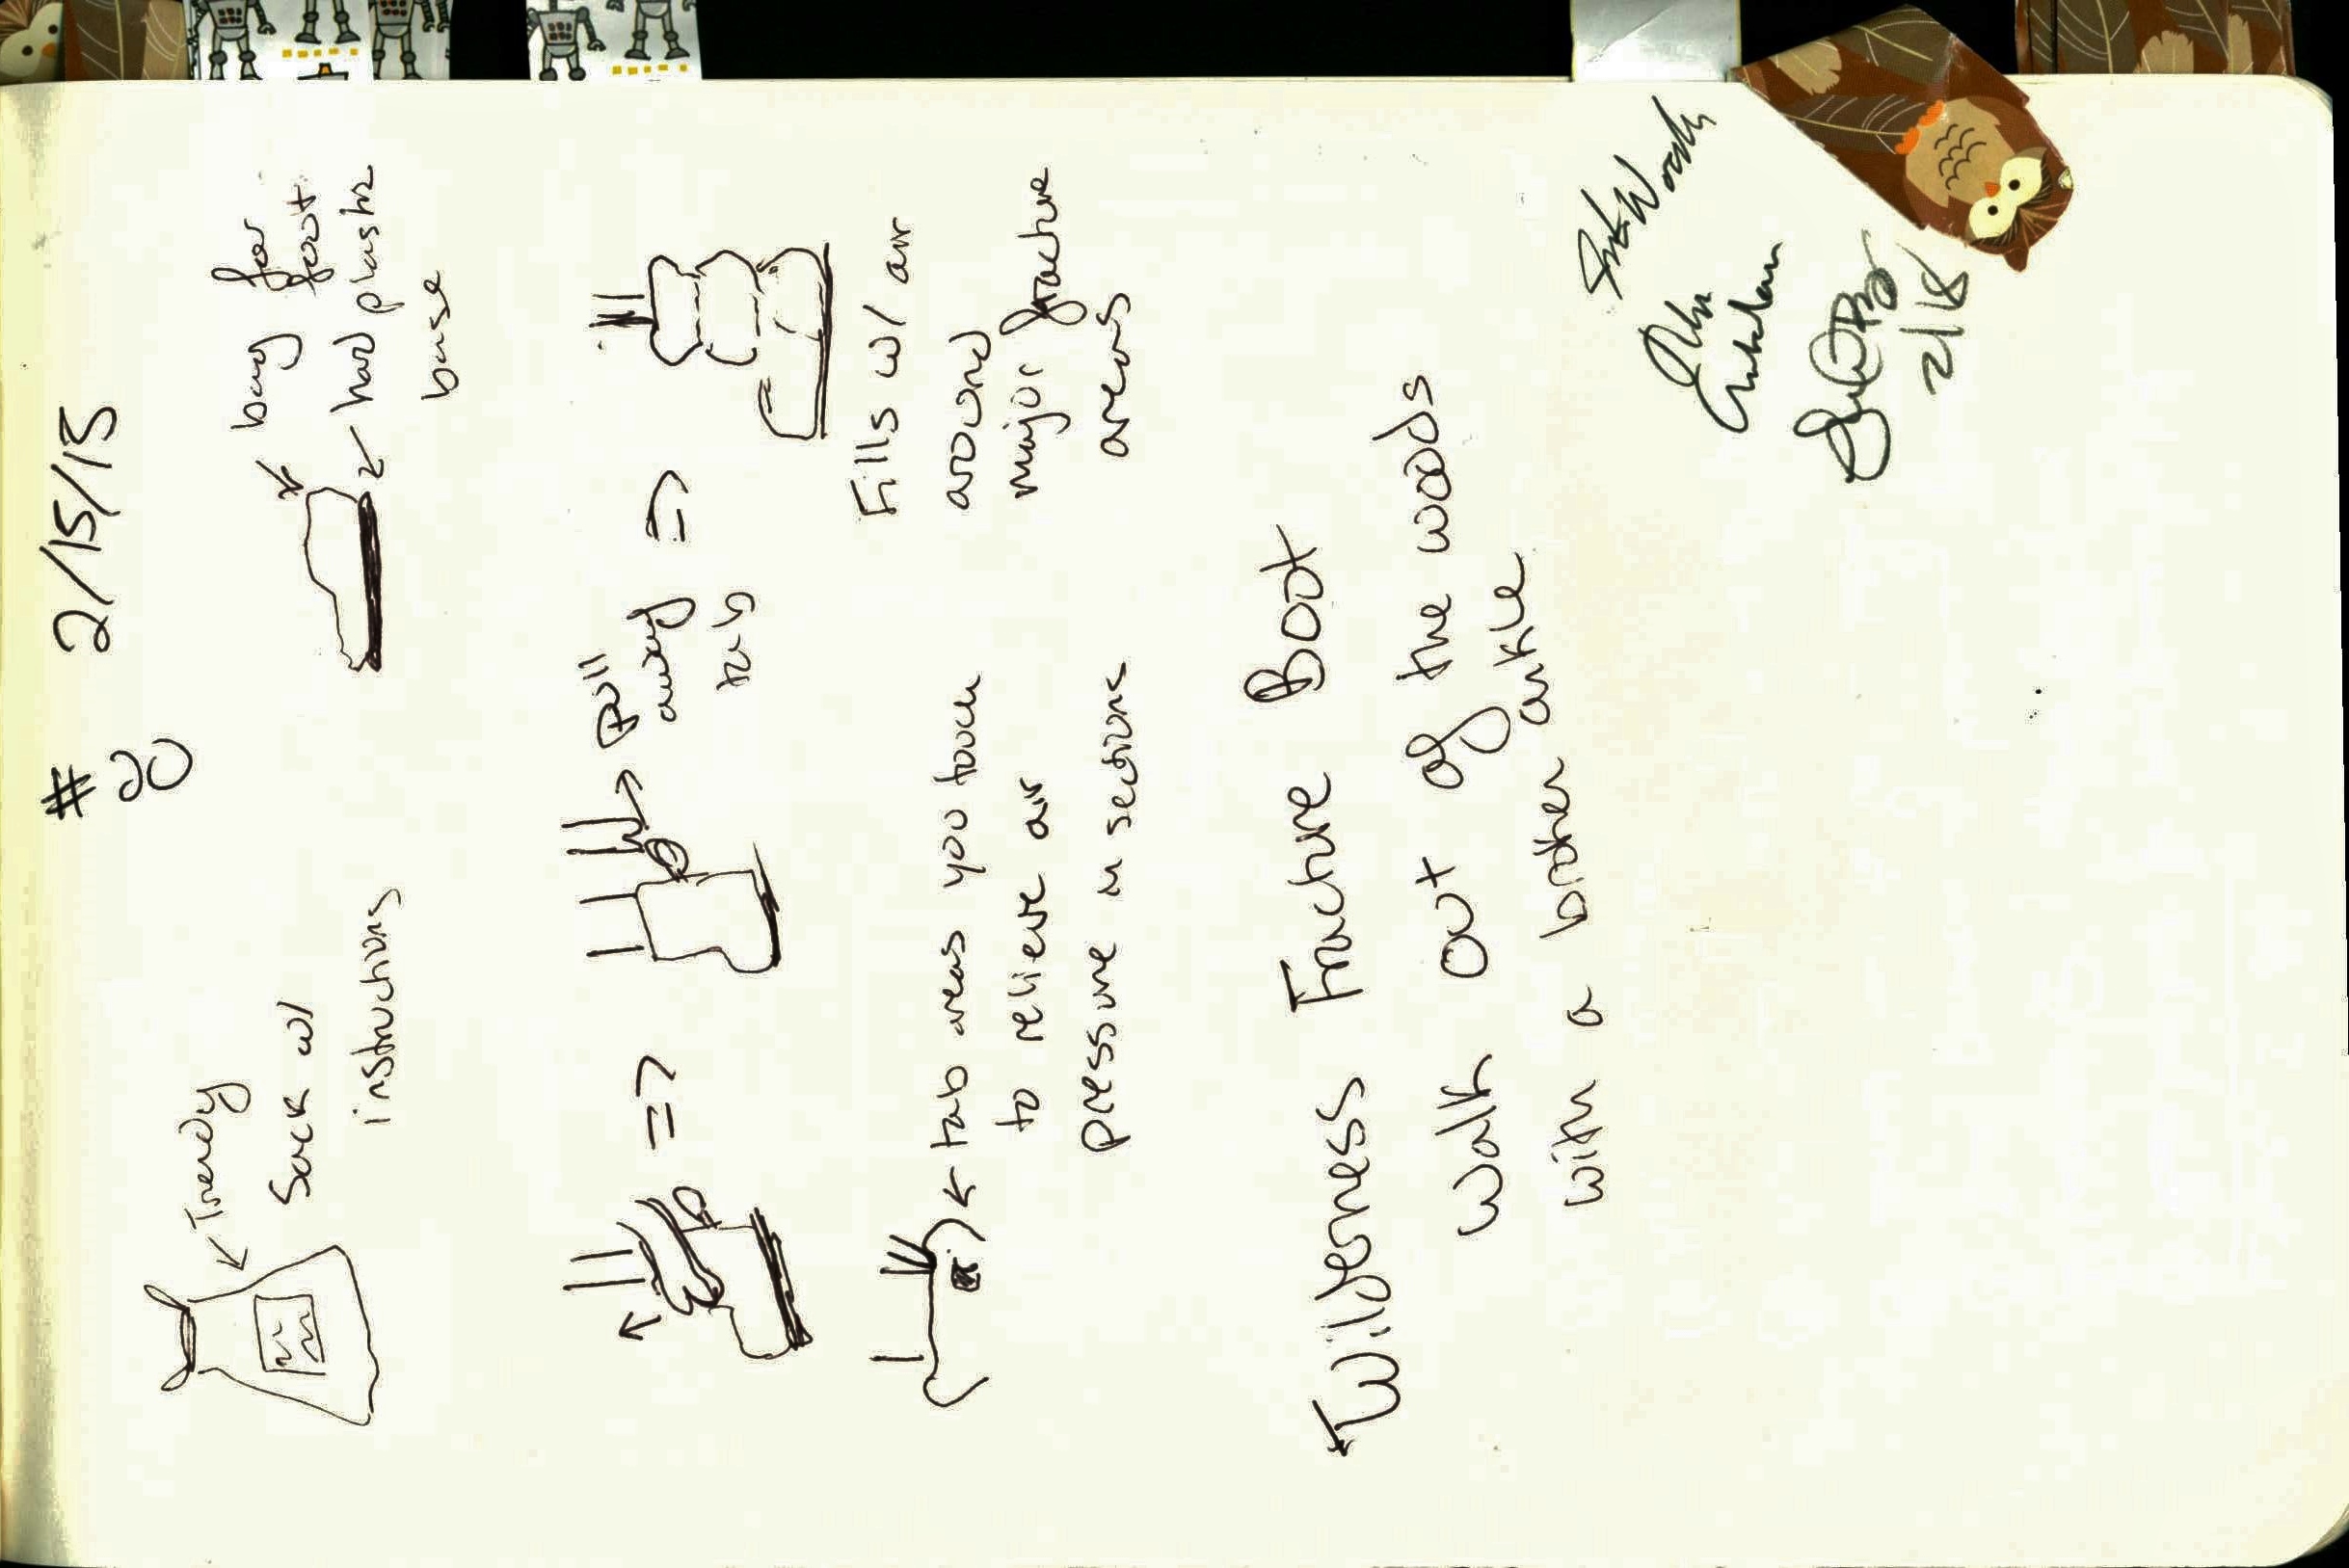 # 2/15/15
20
Trendy
Sack w/
instructions
bag for
foot
hard plastic
base
=>
pull
away
tab
=>
Fills w/ air
around
major fracture
areas
tab areas you touch
to relieve air
pressure in sections
*Wilderness Fracture Boot
Walk out of the woods
with a broken ankle
2/18